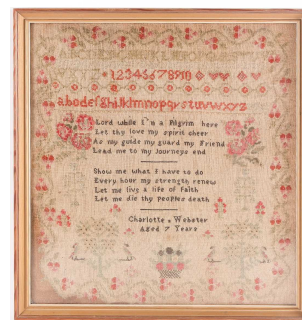 1234567890
abcdefghiklmnopqrstuvwxz
Lord while I'm a Pilgrim here
Let thy love my spirit cheer
As my guide my guard my Friend
Lead me to my Journeys end
Show me what I have to do
Every hour my strength renew
Let me live a life of faith
Let me die thy peoples death
Charlotte Webster
Aged 7 Years